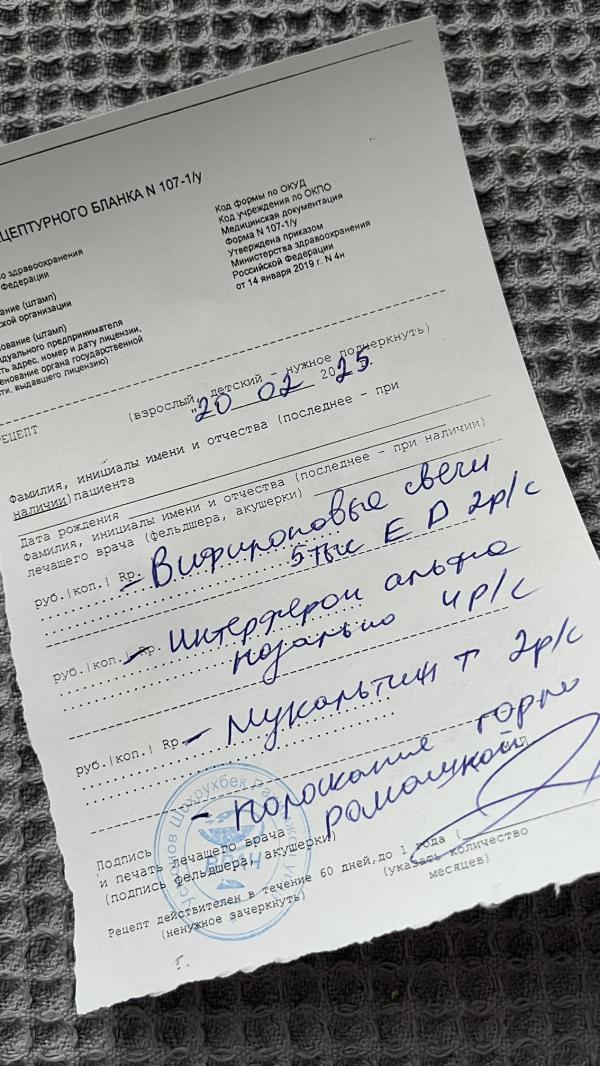 ЦЕПТУРНОГО БЛАНКА N 107-1/у
Код формы по ОКУД
Код учреждения по ОКПО
Медицинская документация
Форма N 107-1/у
Утверждена приказом
Министерства здравоохранения
Российской Федерации
от 14 января 2019 г. N 4н
о здравоохранения
Федерации
ание (штамп)
ской организации
ование (штамп)
идуального предпринимателя
ть адрес, номер и дату лицензии,
менование органа государственной
сти, выдавшего лицензию)
РЕЦЕПТ
(взрослый, детский - нужное подчеркнуть)
"20 02 2025.
Фамилия, инициалы имени и отчества (последнее - при
наличии) пациента
Дата рождения
Фамилия, инициалы имени и отчества (последнее - при наличии)
лечащего врача (фельдшера, акушерки)
руб.|коп.| Rp. - Вифироновые свечи
5 тыс Е D 2р/с
руб.|коп.| Rp. - Интерферон альфа
назально 4р/с
руб.|коп.| Rp. - Мукалтин т 2р/с
- Полоскание горло
ромашкой
Подпись
и печать лечащего врача
(подпись фельдшера, акушерки)
Рецепт действителен в течение 60 дней, до 1 года (
(ненужное зачеркнуть)
(указать количество
месяцев)